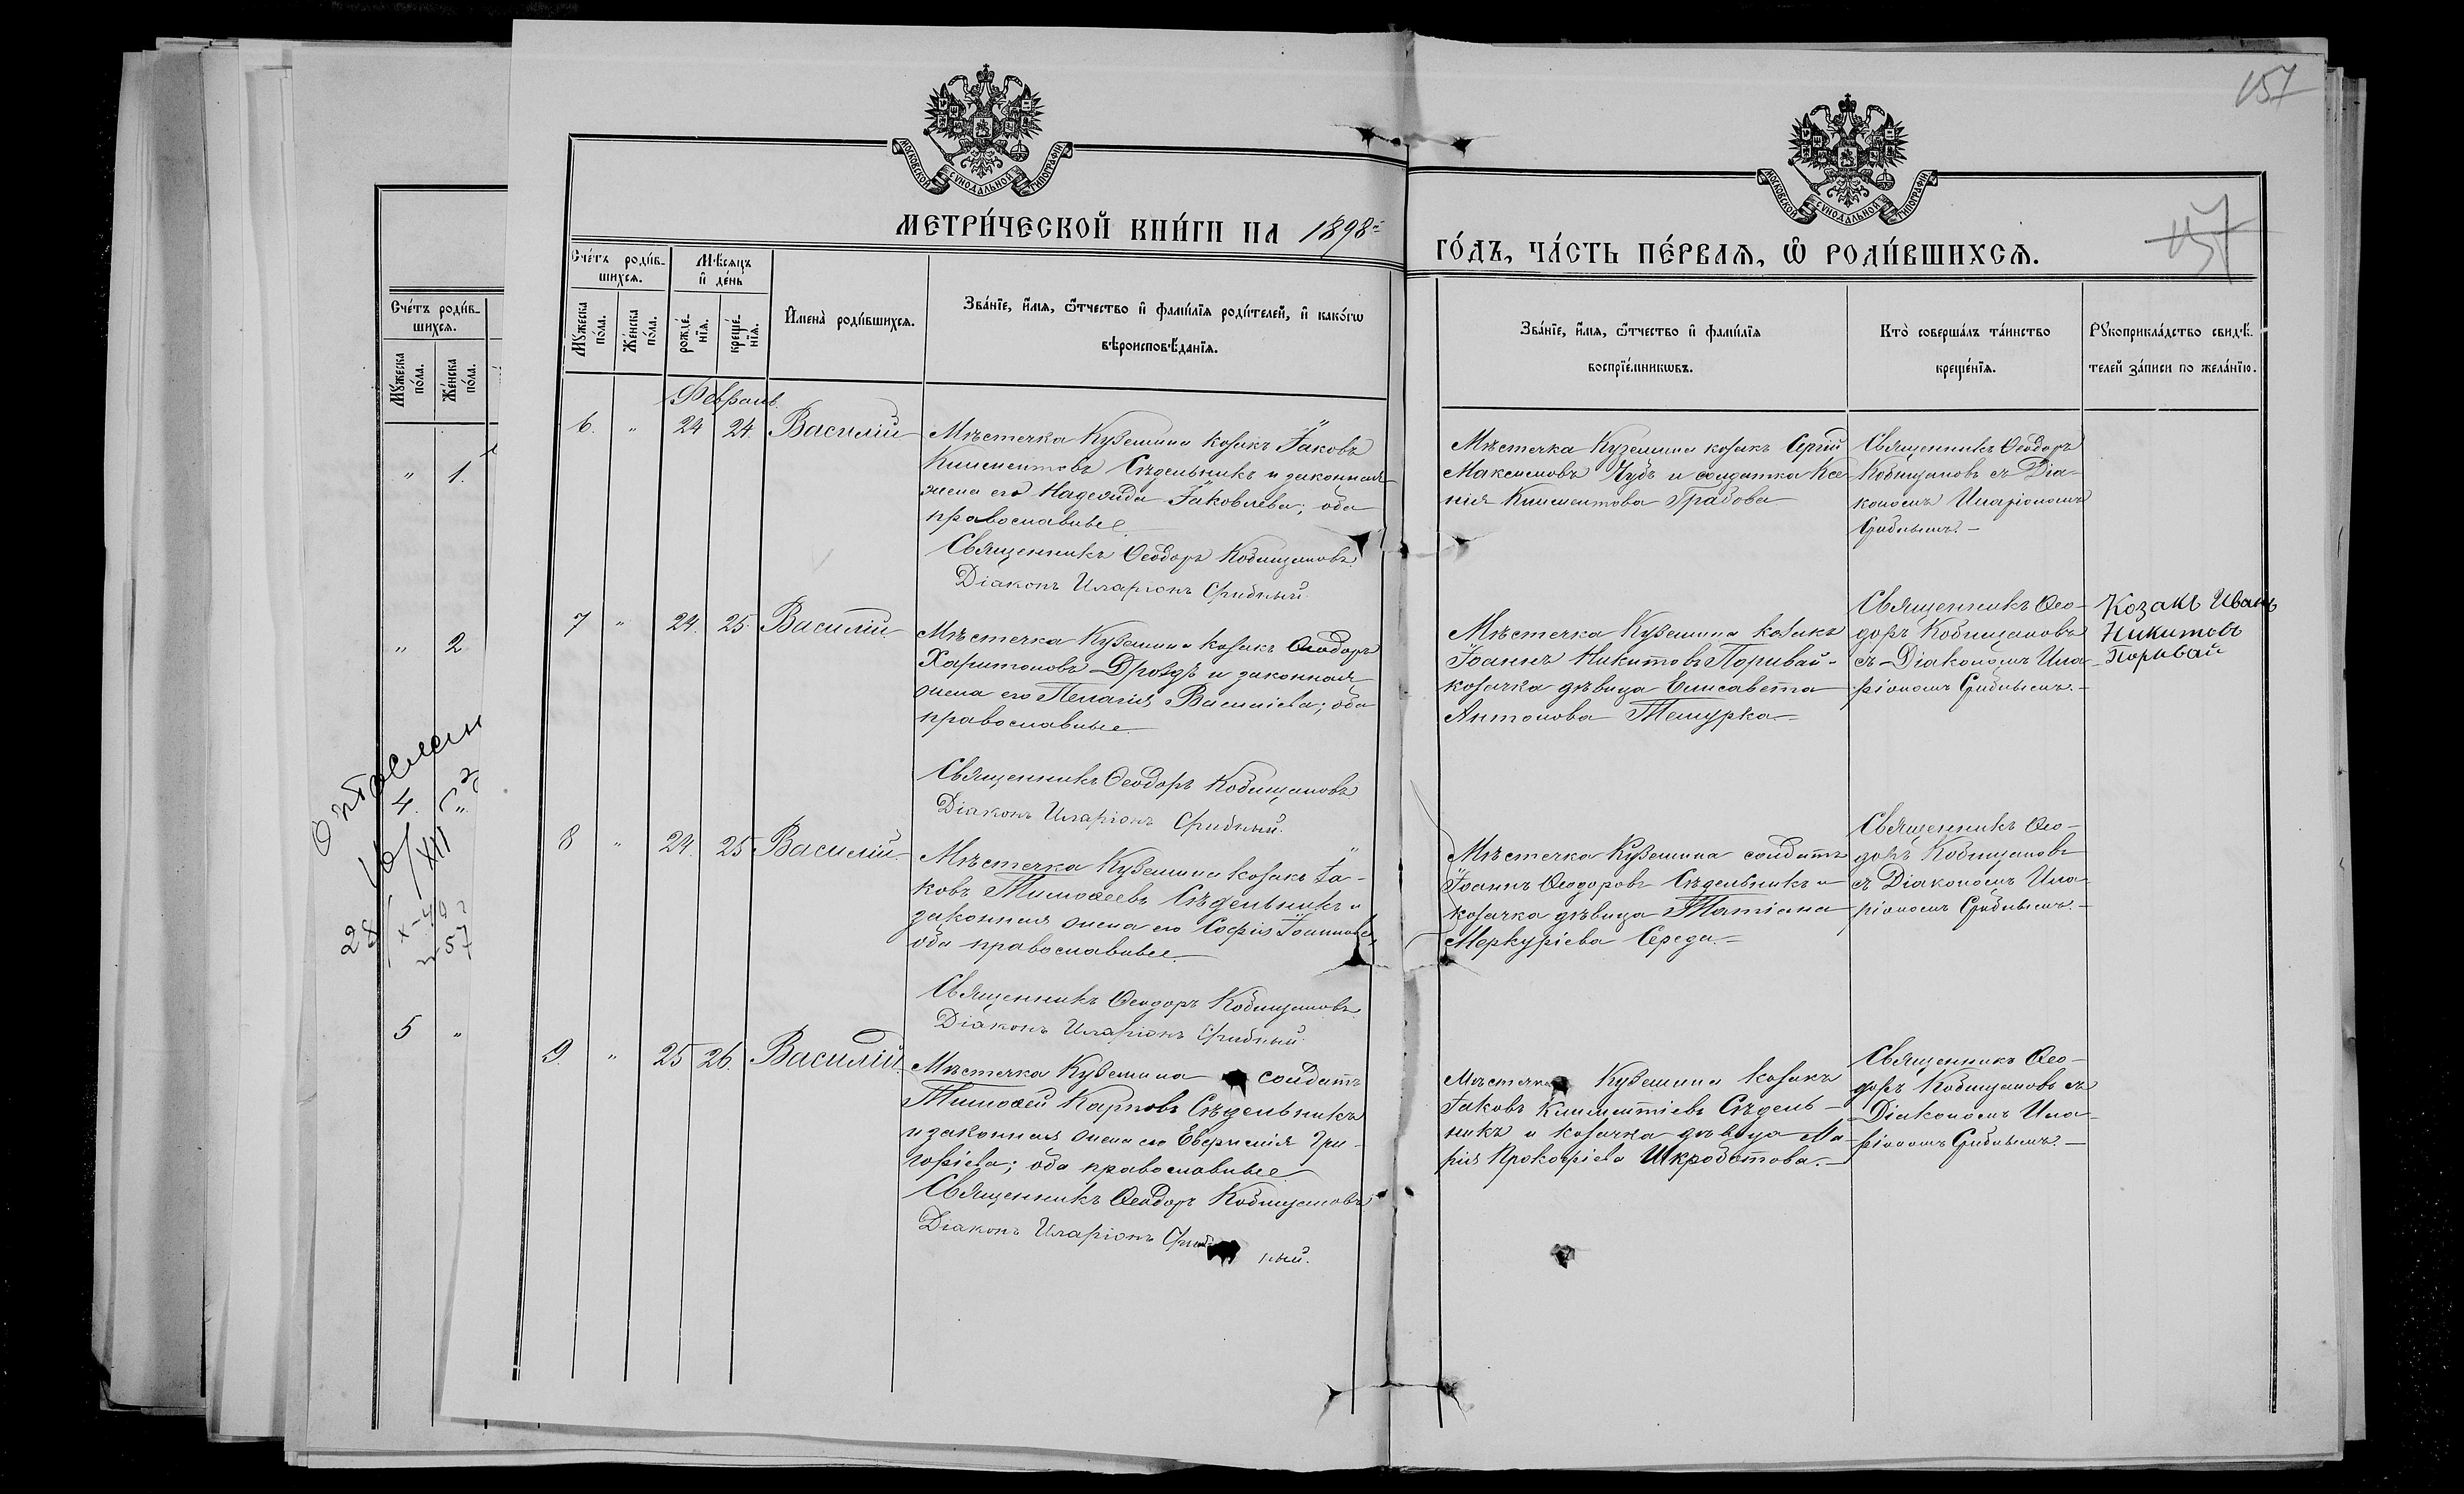 157
МОСКОВСКОЙ СУНОДАЛЬНОЙ ТИПОГРАФІИ
МОСКОВСКОЙ СУНОДАЛЬНОЙ ТИПОГРАФІИ
МЕТРИ́ЧЕСКОЙ КНИ́ГИ НА 1898
ГО́ДЪ, ЧА́СТЬ ПЕ́РВАѦ, Ѽ РОДИ́ВШИХСѦ.
157
Сче́тъ роди́в-
шихсѧ.
Мꙋ́жеска по́ла.
Же́нска по́ла.
Мѣ́сѧцъ и҆ де́нь
рожде́-нїѧ.
креще́-нїѧ.
И҆мена̀ роди́вшихсѧ.
Зва́нїе, и҆́мѧ, ѻ҆́тчество и҆ фами́лїѧ роди́телей, и҆ како́гѡ
вѣроисповѣ́данїѧ.
Зва́нїе, и҆́мѧ, ѻ҆́тчество и҆ фами́лїѧ
воспрїе́мникѡвъ.
Кто̀ соверша́лъ та́инство
креще́нїѧ.
Рꙋкоприкла́дство свидѣ́-
телей за́писи по жела́нїю.
Сче́тъ роди́в-
шихсѧ.
Мꙋ́жеска по́ла.
Же́нска по́ла.
" 1.
" 2
4.
5 "
Февраль.
6. " 24 24. Василій
Мѣстечка Куземина козакъ Іаковъ
Климентовъ Сѣдельникъ и законная
жена его Надежда Іаковлева; оба
православные.
Священникъ Ѳеодоръ Кобищановъ
Діаконъ Иларіонъ Срибный.
Мѣстечка Куземина козакъ Сергій
Максимовъ Чубъ и солдатка Ксе-
нія Климентова Грабова
Священникъ Ѳеодоръ
Кобищановъ съ Діа-
кономъ Иларіономъ
Срибнымъ.-
7 " 24. 25. Василій
Мѣстечка Куземина козакъ Ѳеодоръ
Харитоновъ Дроздъ и законная
жена его Пелагія Василіева; оба
православные
Священникъ Ѳеодоръ Кобищановъ
Діаконъ Иларіонъ Срибный.
Мѣстечка Куземина козакъ
Іоаннъ Никитовъ Поривай
козачка дѣвица Елисавета
Антонова
Священникъ Ѳео-
доръ Кобищановъ
съ Діакономъ Ила-
ріономъ Срибнымъ.-
Козакъ Иванъ
Никитовъ
Поривай
8 " 24. 25 Василій
Мѣстечка Куземина козакъ Іа-
ковъ Тимоѳеевъ Сѣдельникъ и
законная жена его Софія Іоаннова
оба православные
Священникъ Ѳеодоръ Кобищановъ
Діаконъ Иларіонъ Срибный.
Мѣстечка Куземина солдатъ
Іоаннъ Ѳеодоровъ Сѣдельникъ и
козачка дѣвица Татіана
Меркуріева Середа.
Священникъ Ѳео-
доръ Кобищановъ
съ Діакономъ Ила-
ріономъ Срибнымъ.-
9. " 25 26. Василій
Мѣстечка Куземина солдатъ
Тимоѳей Карповъ Сѣдельникъ
и законная жена его Евфимія Гри-
горіева; оба православные
Священникъ Ѳеодоръ Кобищановъ
Діаконъ Иларіонъ Срибный.
Мѣстечка Куземина козакъ
Іаковъ Климентіевъ Сѣдель-
никъ и козачка дѣвица Ма-
рія Прокофіева Шкроботова.-
Священникъ Ѳео-
доръ Кобищановъ съ
Діакономъ Ила-
ріономъ Срибнымъ.-